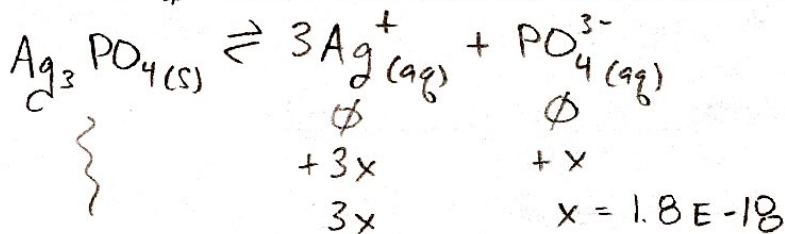 Ag₃PO₄(s) ⇌ 3Ag⁺(aq) + PO₄³⁻(aq)
∅ ∅
+3x +x
3x x = 1.8E-18